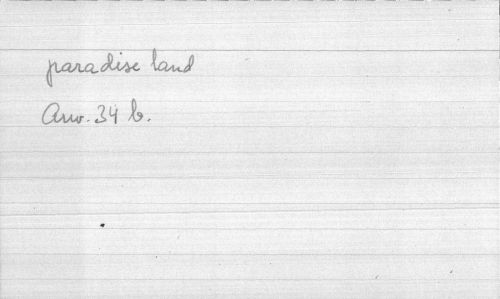 paradise land
Anv. 34 b.